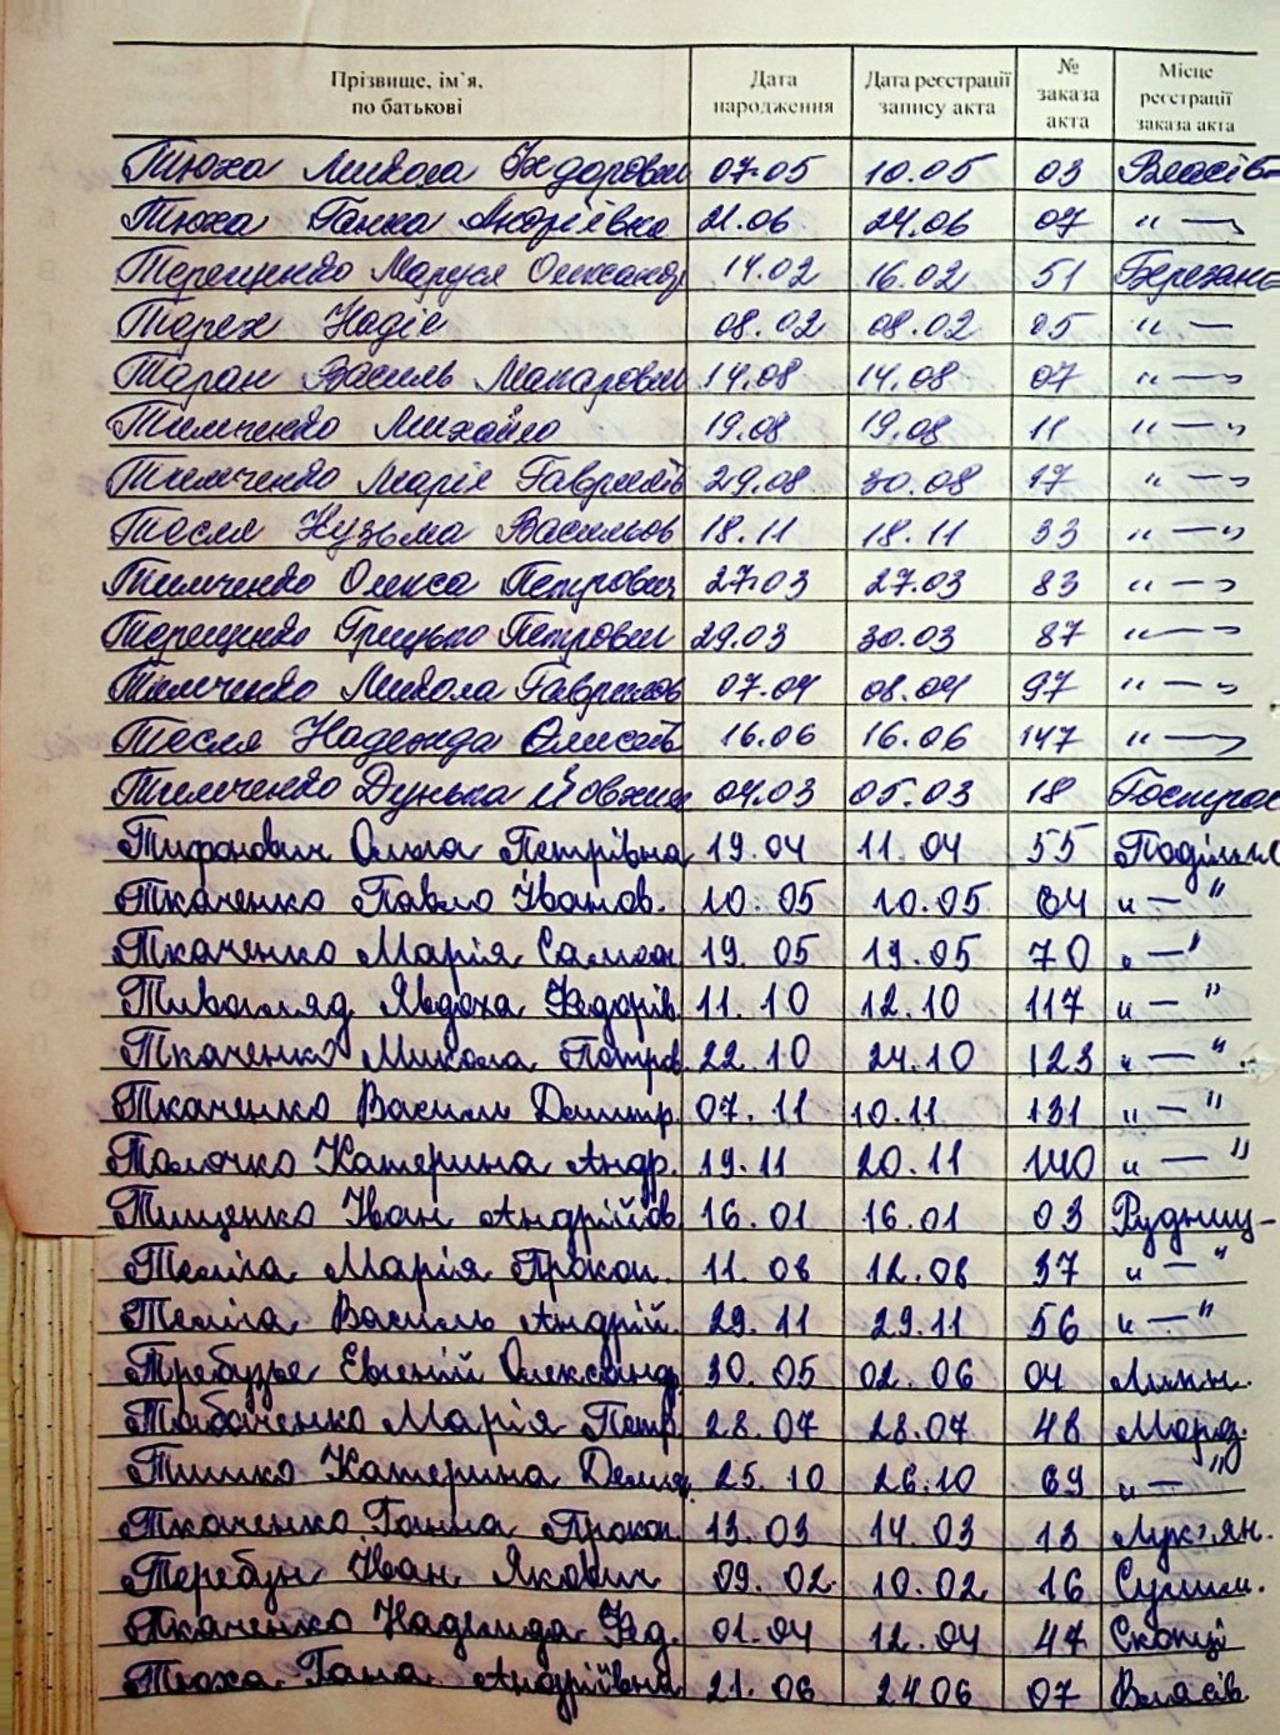 Прізвище, ім`я, по батькові Дата народження Дата реєстрації запису акта № заказа акта Місце реєстрації заказа акта
Тюха Микола Федорови 07.05 10.05 03 Власів-
Тюха Ганна Андріївна 21.06 24.06 07 " — "
Терещенко Маруся Олександр 14.02 16.02 51 Березан-
Терех Надіє 08.02 08.02 05 " —
Таран Василь Макарови 14.08 14.08 07 " — "
Тимченко Михайло 19.08 19.08 11 " — "
Тимченко Маріє Гаврилів 29.08 30.08 17 " — "
Тесля Кузьма Васильов 18.11 18.11 33 " — "
Тимченко Олекса Петрович 27.03 27.03 83 " — "
Терещенко Грицько Петрович 29.03 30.03 87 " — "
Тимченко Микола Гаврилов 07.04 08.04 97 " — "
Тесля Надежда Олексіїв 16.06 16.06 147 " — "
Тимченко Дунька 04.03 05.03 18
Тифонович Ольга Петрівна 19.04 11.04 55
Ткаченко Павло Іванов. 10.05 10.05 64 " — "
Ткаченко Марія 19.05 19.05 70 " — "
Явдоха Федорів. 11.10 12.10 117 " — "
Ткаченко Микола Петров 22.10 24.10 123 " — "
Ткаченко Василь Дмитр. 07.11 10.11 131 " — "
Толочко Катерина Андр. 19.11 20.11 140 " — "
Тищенко Іван Андрійов 16.01 16.01 03 Рудниц-
Теліга Марія Прокоп. 11.08 12.08 37 " — "
Теліга Василь Андрій. 29.11 29.11 56 " — "
Требузьє Евгеній Олександ. 30.05 02.06 04
Табаченко Марія Петр. 28.07 28.07 48
Тишко Катерина 25.10 26.10 69 " — "
Ткаченко Ганна Прокоп. 13.03 14.03 13 Лук'ян.
Теребун Іван Якович 09.02. 10.02 16 Сулим.
Ткаченко Надежда Фед. 01.04 12.04 47 Скопці
Тюха Гана Андріївна 21.06 24 06 07 Власів